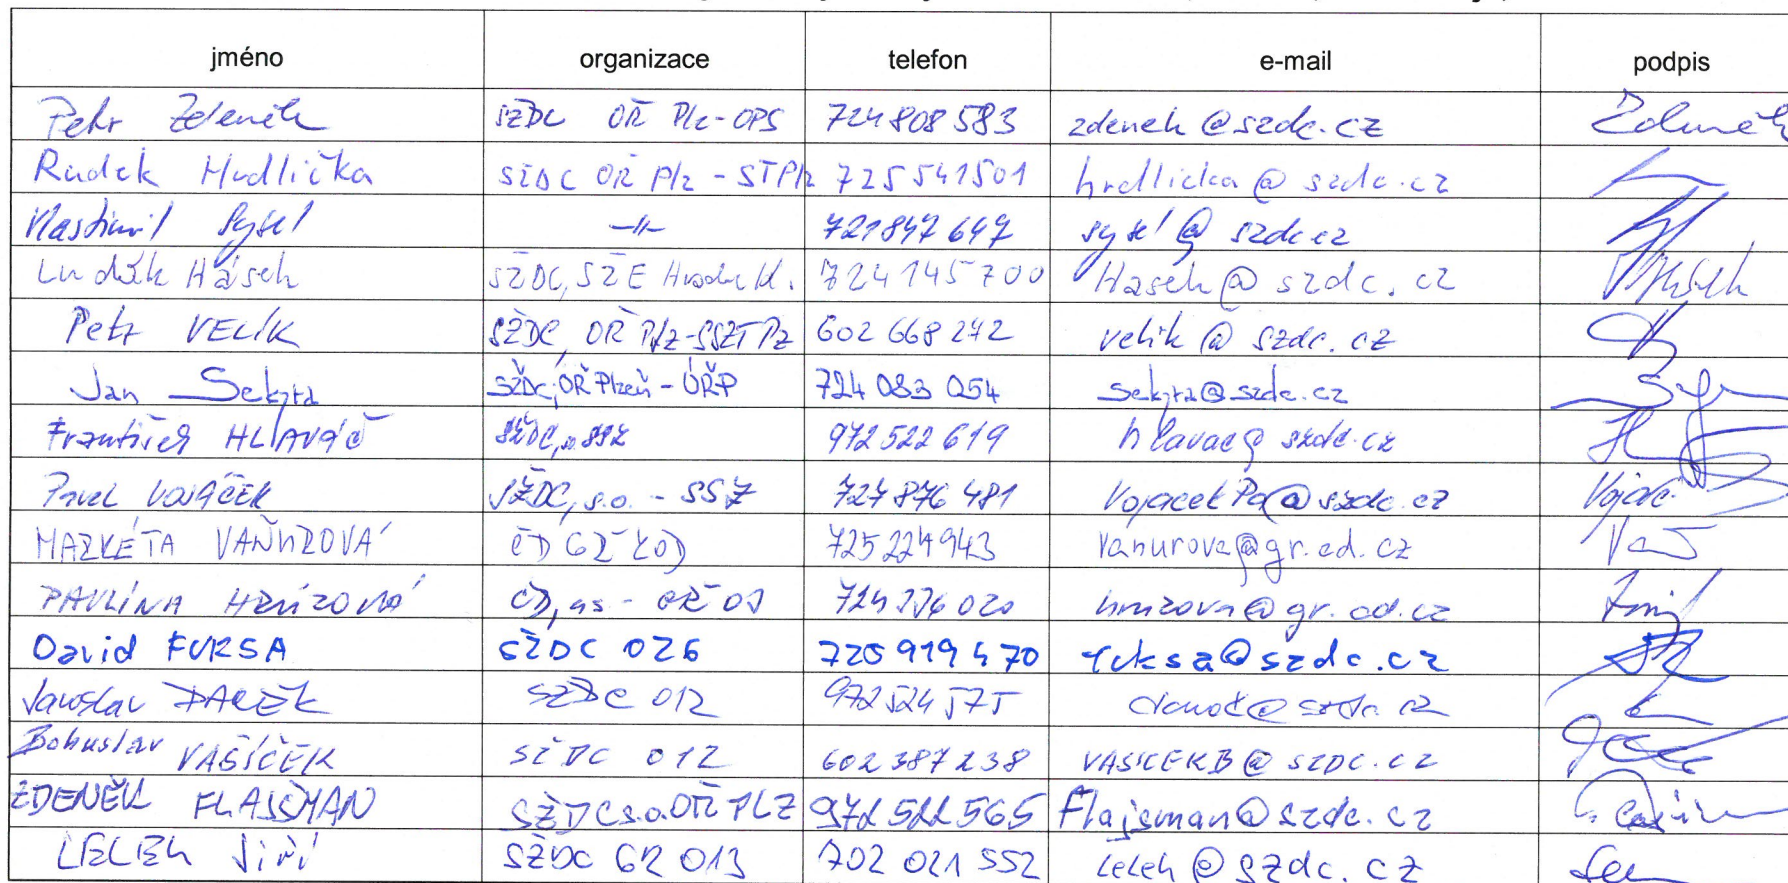 jméno organizace telefon e-mail podpis
Petr Zdeněk SŽDC OŘ Plz-OPS 724 808 583 zdenek@szdc.cz Zdeněk
Radek Hrdlička SŽDC OŘ Plz - STPlz 725 541 501 hrdlicka@szdc.cz
Vlastimil Sysel -||- 721847647 sysel@szdc.cz
Luděk Hásek SŽDC, SŽE Hradec Kr. 724 145 700 Hasek@szdc.cz
Petr VELÍK SŽDC, OŘ Plz-SSZT Plz 602 668 242 velik@szdc.cz
Jan Sekyra SŽDC, OŘ Plzeň - ÚŘP 724 083 054 sekyra@szdc.cz
František HLAVÁČ SŽDC, SSZ 972 522 619 hlavac@szdc.cz
Pavel VOJÁČEK SŽDC, s.o. - SSZ 727 876 481 VojacekPa@szdc.cz
MARKÉTA VAŇUROVÁ ČD GŘ 725224943 vanurova@gr.cd.cz
PAVLÍNA HRŮZOVÁ ČD, as - hruzova@gr.cd.cz
David FUKSA SŽDC 026 720 919 470 fuksa@szdc.cz
Jaroslav SŽDC 012 972 524 575
Bohuslav VAŠÍČEK SŽDC 012 602 387 238 VASICEKB@SZDC.CZ
ZDENĚK FLAJŠMAN SŽDC s.o. OŘ PLZ 972 522 565 Flajsman@szdc.cz
LELEK Jiří SŽDC GŘ 013 702 021 552 lelek@szdc.cz